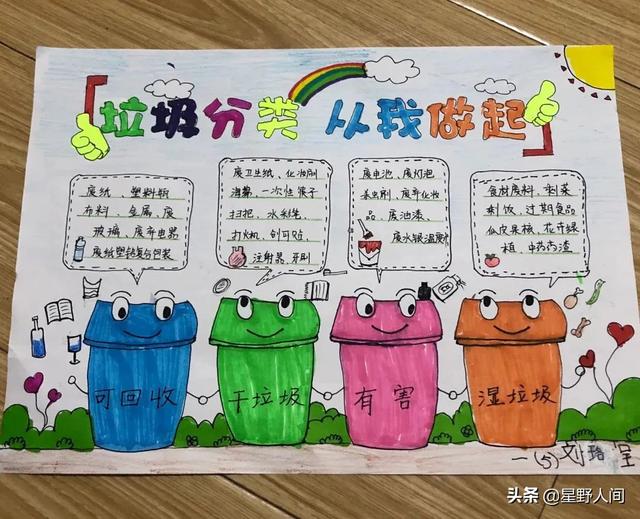 垃圾分类 从我做起
废纸、塑料瓶
布料、金属、废
玻璃、废弃电器
废纸塑铝复合包装
废卫生纸、化妆刷
海绵、一次性筷子
扫把、水彩笔、
打火机、创可贴
注射器、牙刷
废电池、废灯泡
杀虫剂、废弃化妆
品、废油漆、
废水银温度计
食材废料、剩菜
剩饭、过期食品
瓜皮果核、花卉绿
植、中药药渣
可回收
干垃圾
有害
湿垃圾
一(5)刘
头条 @星野人间